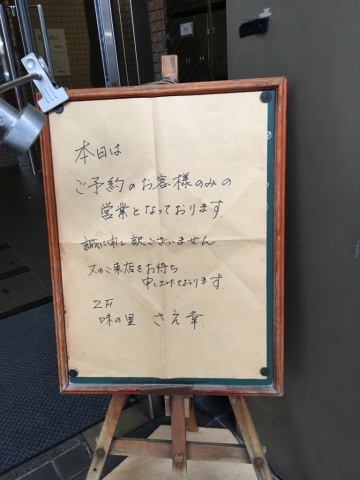 本日は
ご予約のお客様のみの
営業となっております
誠に申し訳ございません
又のご来店をお待ち
申し上げております
2F
味の里 さえ幸